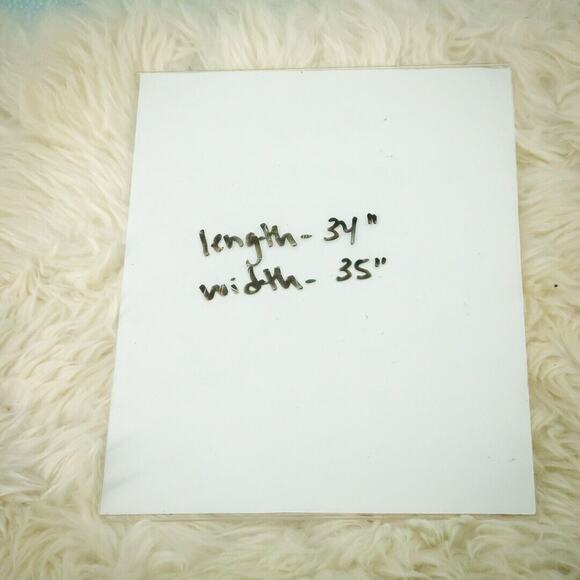 length- 34"
width- 35"